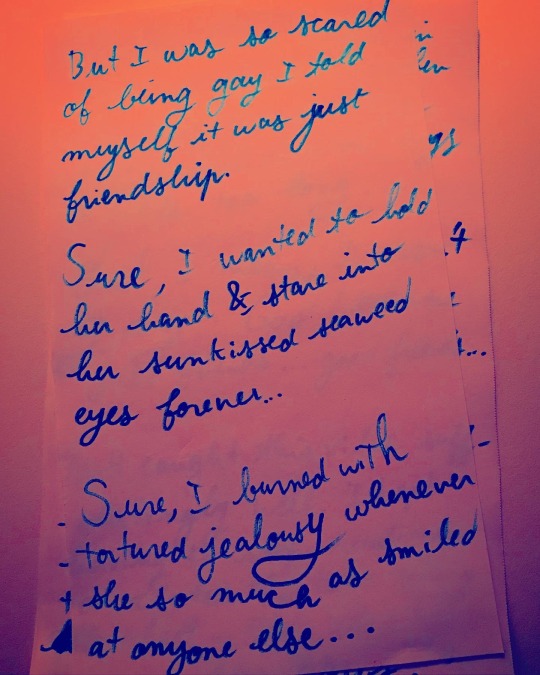 But I was so scared
of being gay I told
myself it was just
friendship.
Sure, I wanted to hold
her hand & stare into
her sunkissed seaweed
eyes forever...
Sure, I burned with
tortured jealousy whenever
she so much as smiled
at anyone else...